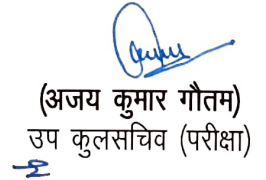 (अजय कुमार गौतम)
उप कुलसचिव (परीक्षा)